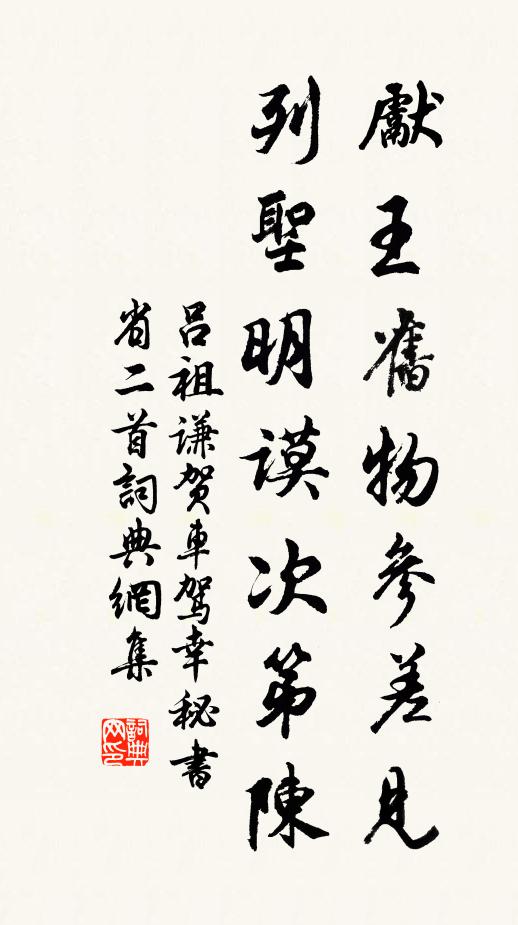 獻王舊物參差見
列聖明謨次第陳
呂祖謙賀車駕幸秘書
省二首詞典網集
詞典网印